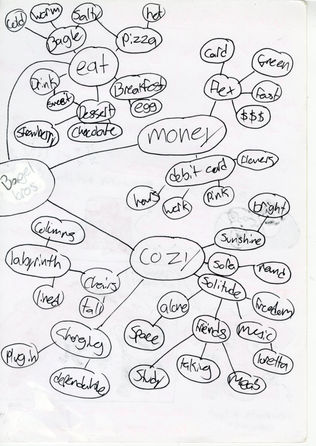 Cold
worm
Salty
hot
Bagle
Pizza
eat
Card
Green
Drink
Breakfast
Flex
fast
Sweet
Dessert
egg
$$$
Strawberry
Chocolate
money
Flowers
debit card
hours
work
pink
Bagel
bros
bright
Columns
Sunshine
labyrinth
COZY
Sofa
Chairs
Solitude
lined
tall
alone
freedom
Charging
Space
friends
music
Plug in
loretta
dependable
Study
talking
Meals